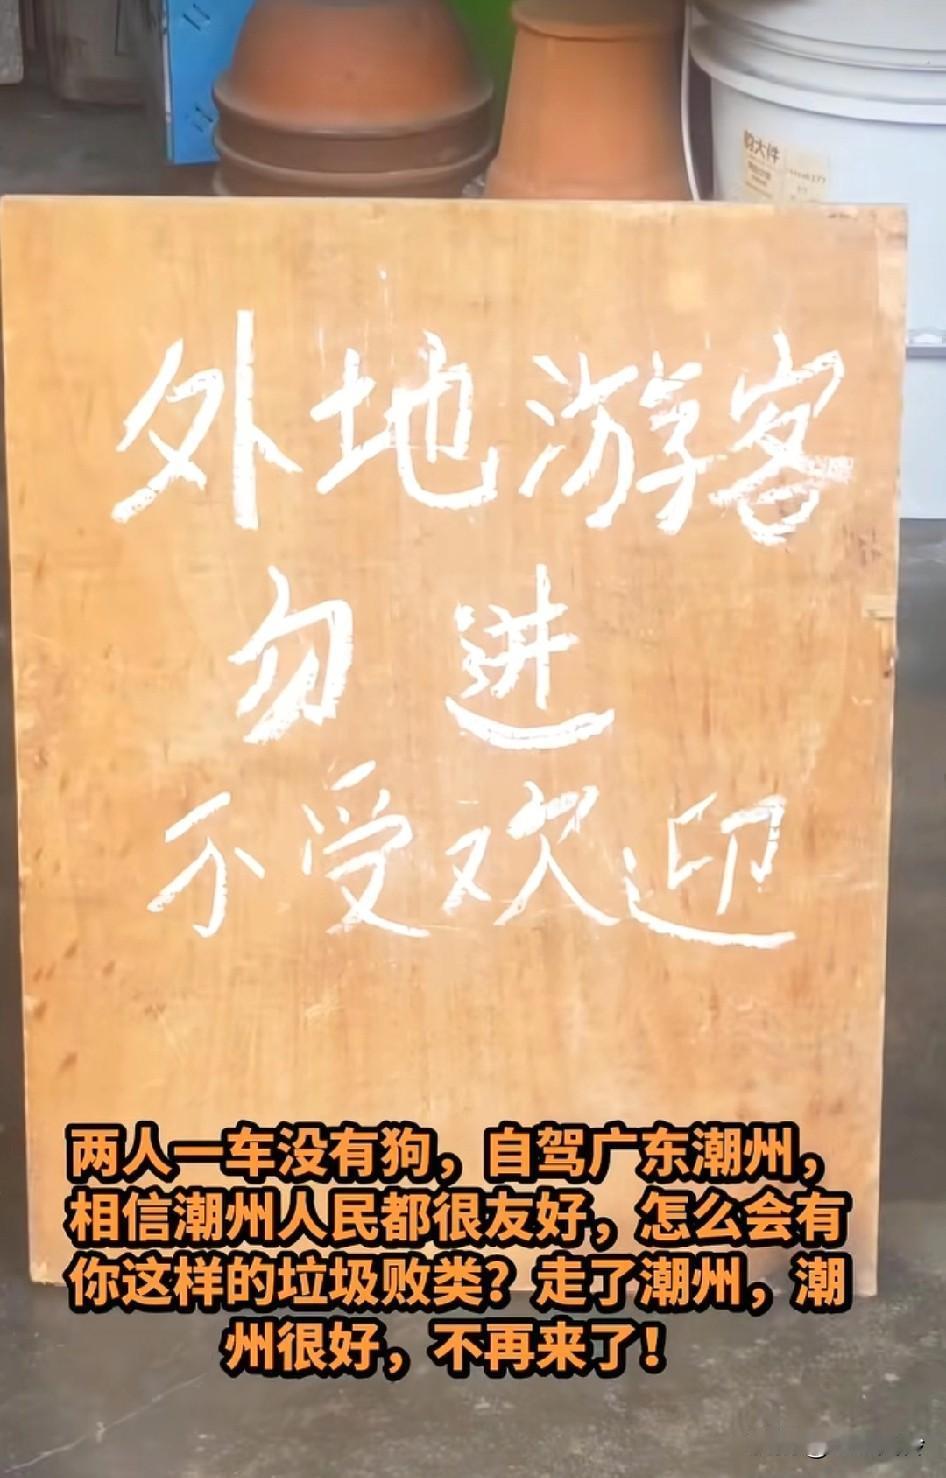 外地游客
勿进
不受欢迎
两人一车没有狗，自驾广东潮州，
相信潮州人民都很友好，怎么会有
你这样的垃圾败类？走了潮州，潮
州很好，不再来了！